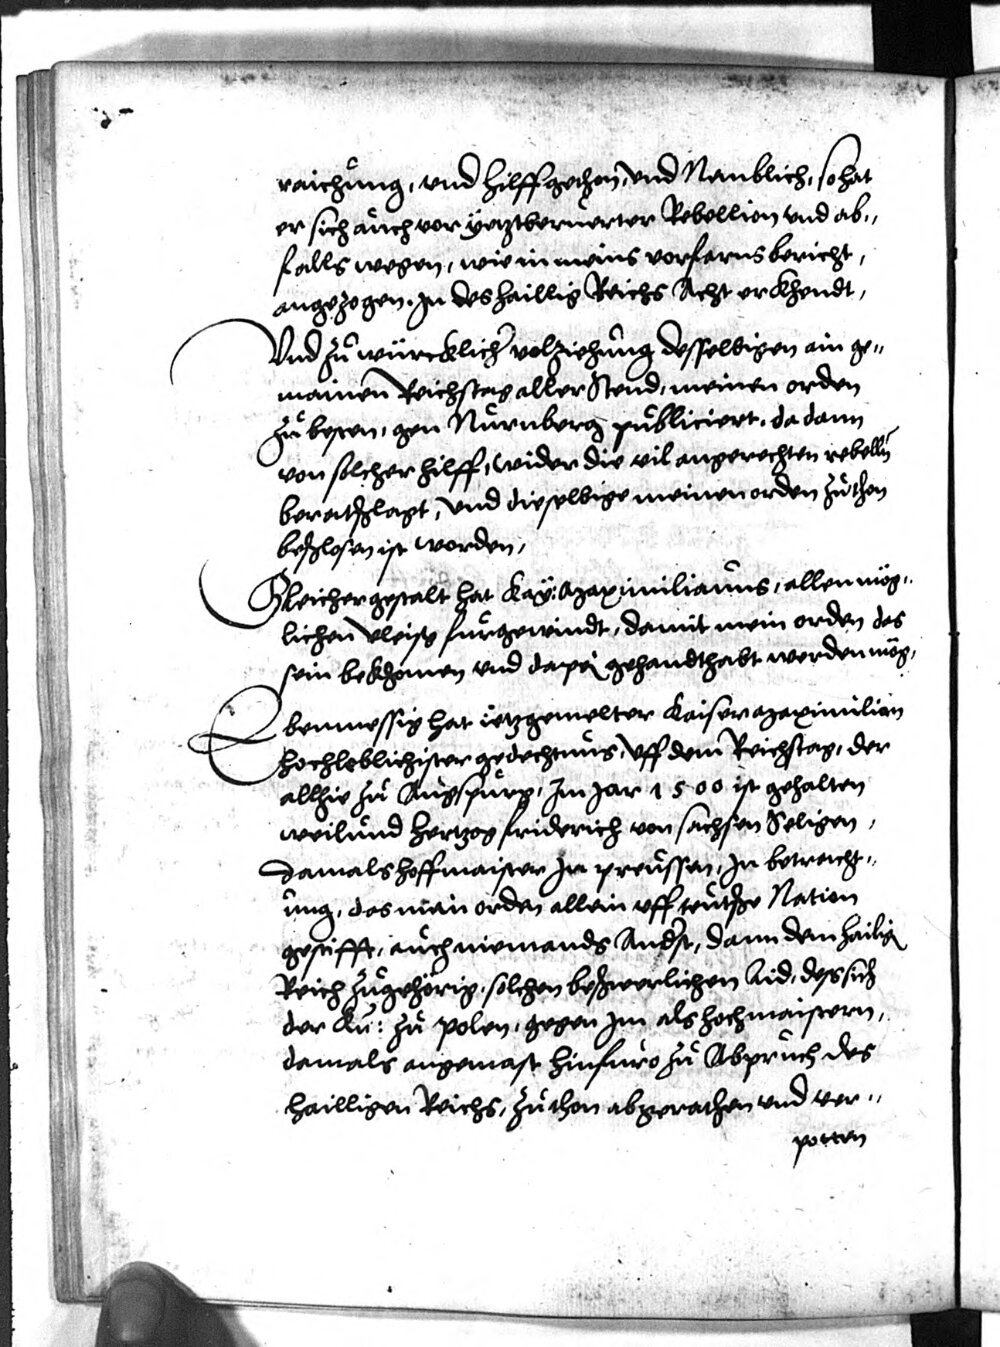 raichung, und hilff gethon, und Nemblich, so hat
er sich auch vor yetztberuerter Rebellion und ab„
falls wegen, wie in meins vorfarns bericht,
angezogen. In des haillig Reichs Acht erkhendt,
Und zu würcklicher volziehung desselbigen ain ge„
mainen Reichstag aller Stend, meinen orden
zu besten, gen Nürnberg publiciert, da dann
von solcher hilff, wider die vil angerechten rebelln
beratschlagt, und dieselbige meinen orden zuthon
beschlosen ist worden,
Gleicher gestalt hat Kay: Maximilianus, allen müg„
lichen vleiss fürgewendt, damit mein orden das
sein bekhomen und dapej gehandthabt werden mög,
Ebenmessig hat ietzgemelter Kaiser Maximilian
hochloblichister gedechtnus, uff dem Reichstag, der
allhie zu Augspurg, Im Jar 1500 ist gehalten
weilund Hertzog friderich von sachsen Seligen,
damals hoffmaister In preussen, In betracht„
ung, das mein orden allein uff teutsche Nation
gestifft, auch niemands Anderst, dann dem hailig
Reich zugehörig, solchen beschwerlichen Aid, des sich
der Ku: zu polen, gegen Im als hochmaistern,
damals angemast hinfuro zu Abpruch des
hailligen Reichs, zuthon abgerathen und ver„
potten